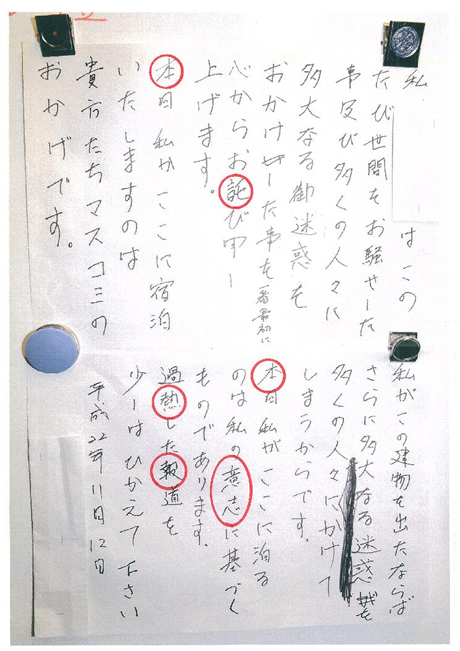 私 はこの
たび世間をお騒せした
事及び多くの人々に
多大なる御迷惑を
おかけした事を一番最初に
心からお託び申し
上げます。
本日私がここに宿泊
いたしますのは
貴方たちマスコミの
おかげです。
私がこの建物を出たならば
さらに多大なる迷惑を
多くの人々にかけて
しまうからです.
本日私がここに泊る
のは私の意志に基づく
ものであります.
過熱した報道を
少しはひかえて下さい
平成22年11月12日